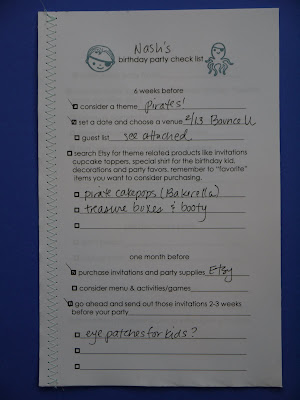 Nash's
birthday party check list
6 weeks before
consider a theme Pirates!
set a date and choose a venue 2/13 Bounce U
guest list see attached
search Etsy for theme related products like invitations
cupcake toppers, special shirt for the birthday kid,
decorations and party favors, remember to "favorite"
items you want to consider purchasing.
pirate cakepops (Bakerella)
treasure boxes & booty
one month before
purchase invitations and party supplies Etsy
consider menu & activities/games
go ahead and send out those invitations 2-3 weeks
before your party
eye patches for kids?